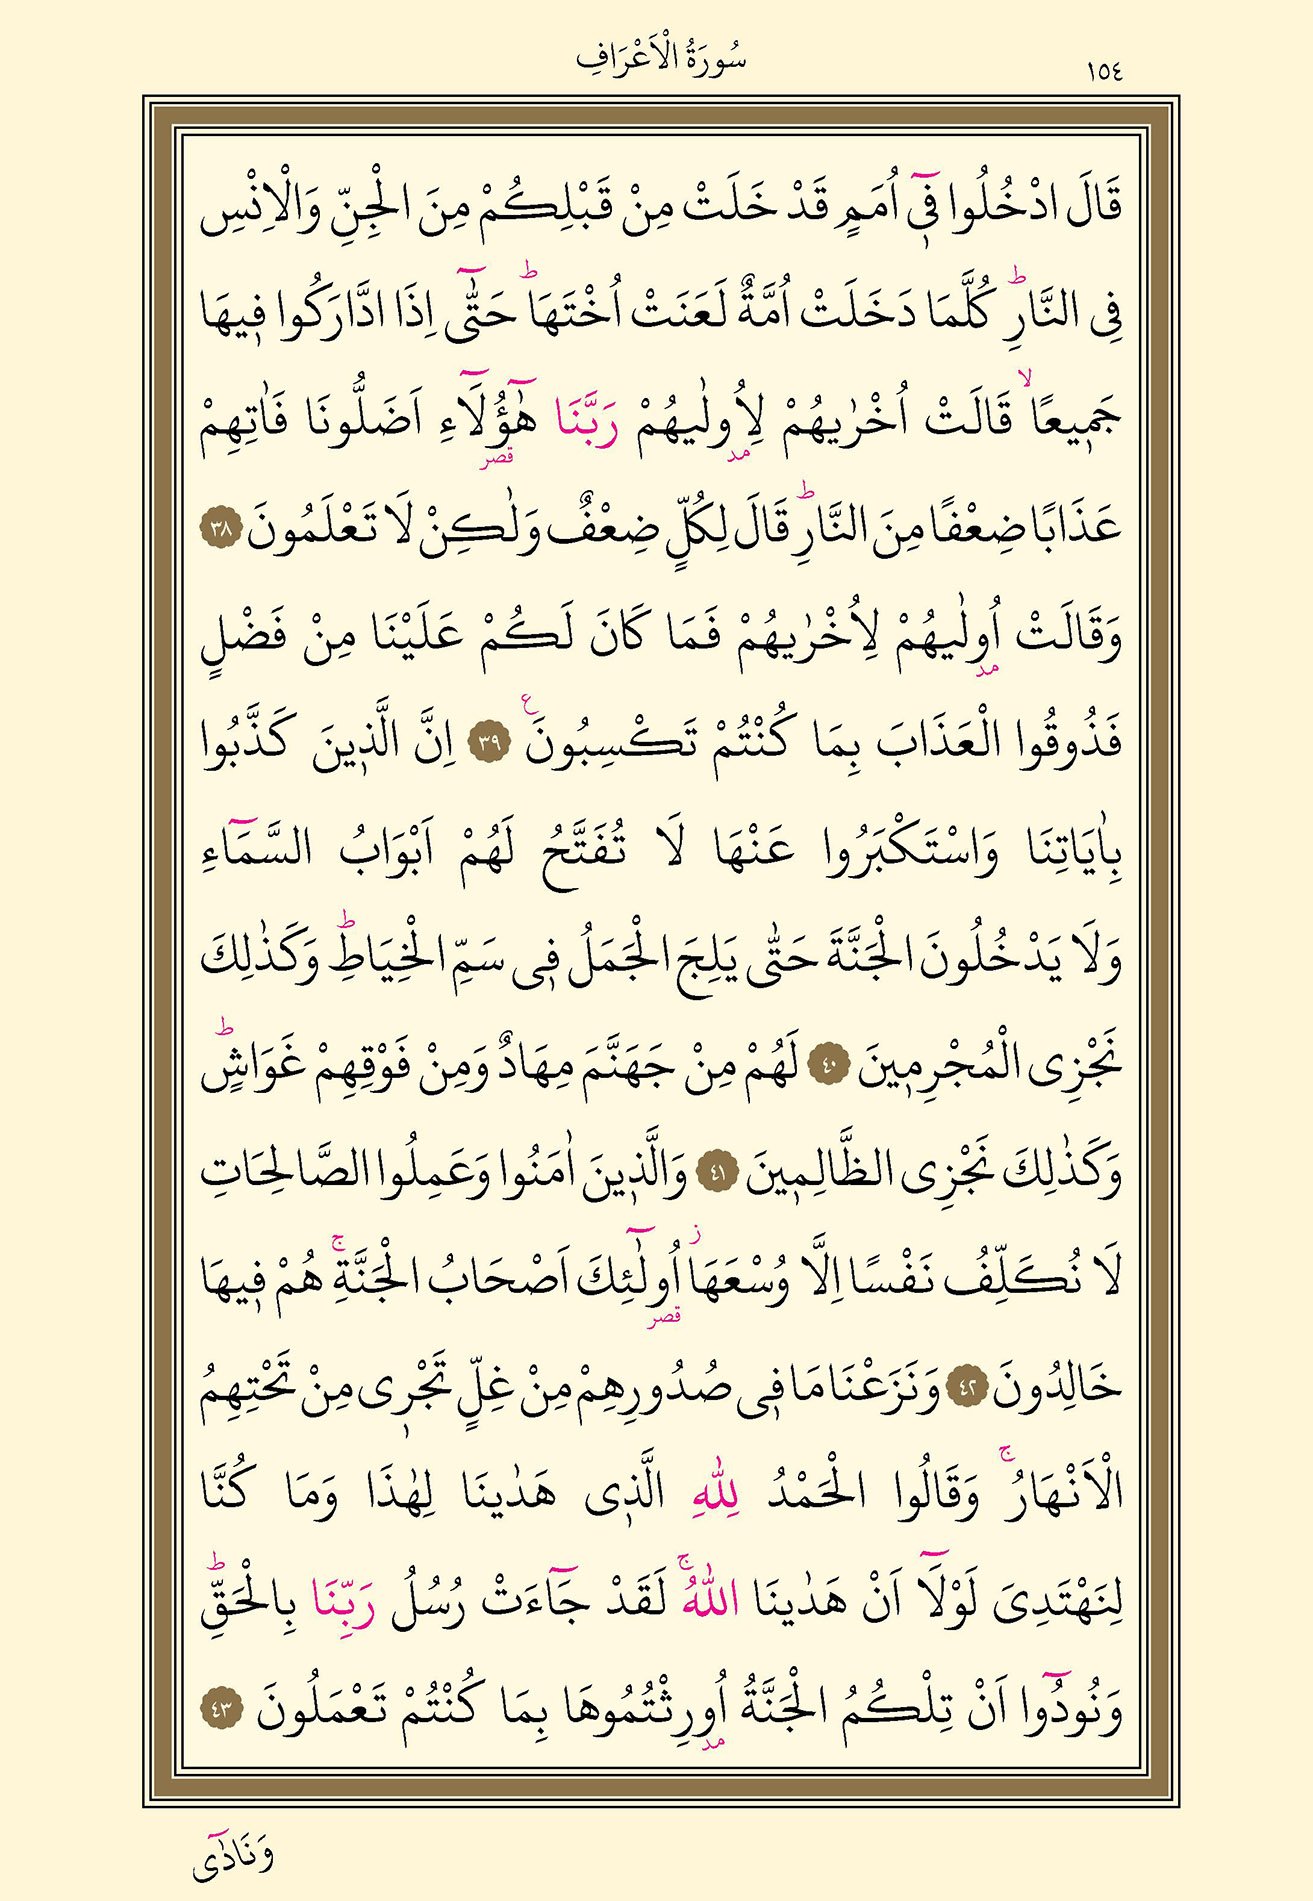 ١٥٤
سُورَةُ الْاَعْرَافِ
قَالَ ادْخُلُوا ف۪ٓي اُمَمٍ قَدْ خَلَتْ مِنْ قَبْلِكُمْ مِنَ الْجِنِّ وَالْاِنْسِ
فِي النَّارِۜ كُلَّمَا دَخَلَتْ اُمَّةٌ لَعَنَتْ اُخْتَهَاۜ حَتّٰٓى اِذَا ادَّارَكُوا ف۪يهَا
جَم۪يعًاۙ قَالَتْ اُخْرٰيهُمْ لِاُو۫لٰيهُمْ رَبَّنَا هٰٓؤُ۬لَٓاءِ اَضَلُّونَا فَاٰتِهِمْ
عَذَابًا ضِعْفًا مِنَ النَّارِۜ قَالَ لِكُلٍّ ضِعْفٌ وَلٰكِنْ لَا تَعْلَمُونَ ٣٨
وَقَالَتْ اُو۫لٰيهُمْ لِاُخْرٰيهُمْ فَمَا كَانَ لَكُمْ عَلَيْنَا مِنْ فَضْلٍ
فَذُوقُوا الْعَذَابَ بِمَا كُنْتُمْ تَكْسِبُونَ۟ ٣٩ اِنَّ الَّذ۪ينَ كَذَّبُوا
بِاٰيَاتِنَا وَاسْتَكْبَرُوا عَنْهَا لَا تُفَتَّحُ لَهُمْ اَبْوَابُ السَّمَٓاءِ
وَلَا يَدْخُلُونَ الْجَنَّةَ حَتّٰى يَلِجَ الْجَمَلُ ف۪ي سَمِّ الْخِيَاطِۜ وَكَذٰلِكَ
نَجْزِي الْمُجْرِم۪ينَ ٤٠ لَهُمْ مِنْ جَهَنَّمَ مِهَادٌ وَمِنْ فَوْقِهِمْ غَوَاشٍۜ
وَكَذٰلِكَ نَجْزِي الظَّالِم۪ينَ ٤١ وَالَّذ۪ينَ اٰمَنُوا وَعَمِلُوا الصَّالِحَاتِ
لَا نُكَلِّفُ نَفْسًا اِلَّا وُسْعَهَاۘ اُو۬لٰٓئِكَ اَصْحَابُ الْجَنَّةِۚ هُمْ ف۪يهَا
خَالِدُونَ ٤٢ وَنَزَعْنَا مَا ف۪ي صُدُورِهِمْ مِنْ غِلٍّ تَجْر۪ي مِنْ تَحْتِهِمُ
الْاَنْهَارُۚ وَقَالُوا الْحَمْدُ لِلّٰهِ الَّذ۪ي هَدٰينَا لِهٰذَا وَمَا كُنَّا
لِنَهْتَدِيَ لَوْلَٓا اَنْ هَدٰينَا اللّٰهُۚ لَقَدْ جَٓاءَتْ رُسُلُ رَبِّنَا بِالْحَقِّۜ
وَنُودُٓوا اَنْ تِلْكُمُ الْجَنَّةُ اُو۫رِثْتُمُوهَا بِمَا كُنْتُمْ تَعْمَلُونَ ٤٣
وَنَادٰٓى